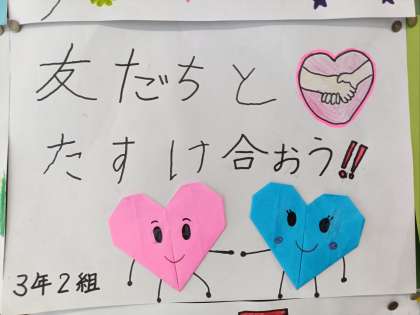 友だちと
たすけ合おう!!
3年2組